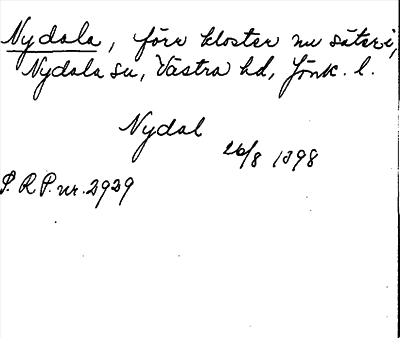 Nydala, förr kloster nu säteri,
Nydala sn, Västra hd, Jönk. l.
Nydal
26/8 1398
S. R. P. nr. 2929